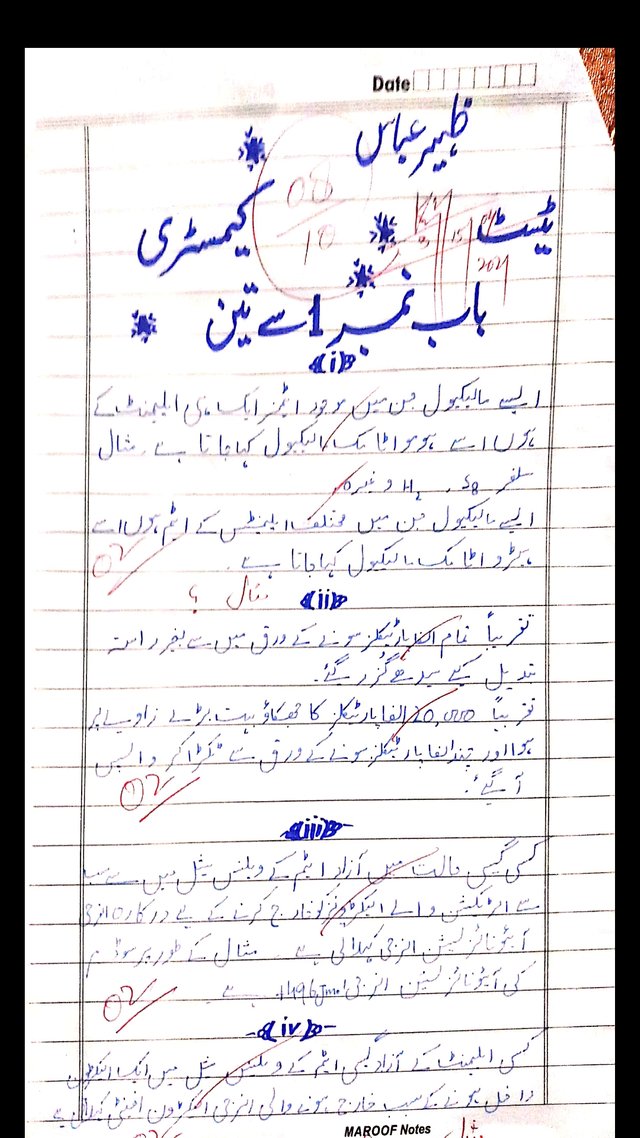 Date
ظہیر عباس
08/10
ٹیسٹ کیمسٹری
15
2021
باب نمبر 1 سے تین
(i)
ایسے مالیکیول جن میں موجود ایٹمز ایک ہی ایلیمنٹ کے
ہوں اسے ہومواٹامک مالیکیول کہا جاتا ہے مثال
سلفر S8 ، H2 وغیرہ
ایسے مالیکیول جن میں مختلف ایلیمنٹس کے ایٹم ہوں اسے
ہیٹرواٹامک مالیکیول کہا جاتا ہے۔
02
مثال ؟
(ii)
تقریباً تمام الفا پارٹیکلز سونے کے ورق میں سے بغیر راستہ
تبدیل کیے سیدھے گزر گئے۔
تقریباً 20,000 الفا پارٹیکلز کا جھکاؤ بہت بڑے زاویے پر
ہوا اور چند الفا پارٹیکلز سونے کے ورق سے ٹکرا کر واپس
آ گئے۔
02
(iii)
کسی گیسی حالت میں آزاد ایٹم کے ویلنس شیل میں سے سب
سے اٹریکشن والے الیکٹرونز کو خارج کرنے کے لیے درکار انرجی
آئیونائزیشن انرجی کہلاتی ہے۔ مثال کے طور پر سوڈیم
کی آئیونائزیشن انرجی 496Jmol ہے۔
02
(iv)
کسی ایلیمنٹ کے آزاد گیسی ایٹم کے ویلنس شیل میں ایک الیکٹرون
داخل ہونے کے سبب خارج ہونے والی انرجی الیکٹرون افینٹی کہلاتی ہے
MAROOF Notes